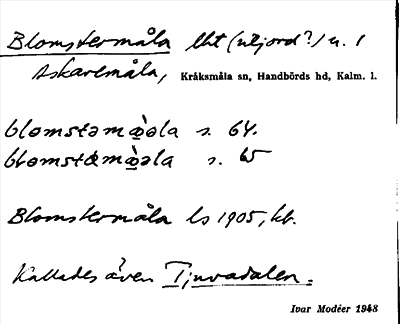 Blomstermåla lht (utjord?) u. 1
Askaremåla, Kråksmåla sn, Handbörds hd, Kalm. l.
blomstəmǫ̀əla s. 64.
s. 65
Blomstermåla ls 1905, kb.
Kallades även Tjuvadalen.
Ivar Modéer 1948